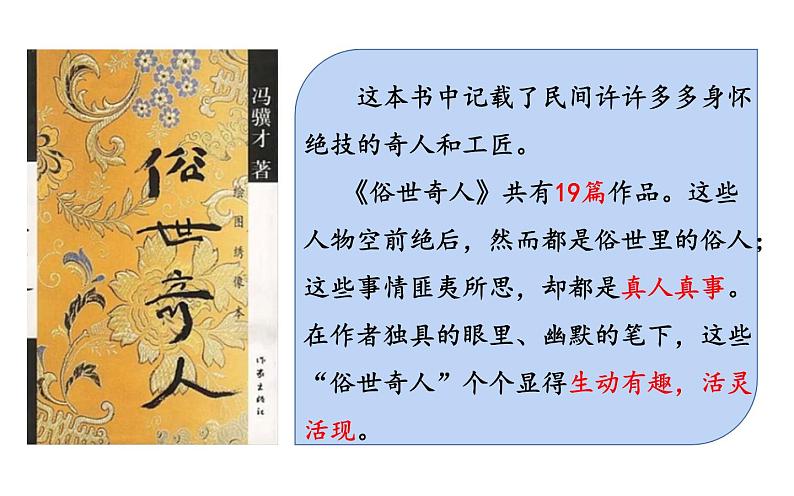 冯骥才 著
绘图绣像本
俗世奇人
作家出版社
这本书中记载了民间许许多多身怀
绝技的奇人和工匠。
《俗世奇人》共有19篇作品。这些
人物空前绝后，然而都是俗世里的俗人；
这些事情匪夷所思，却都是真人真事。
在作者独具的眼里、幽默的笔下，这些
“俗世奇人”个个显得生动有趣，活灵
活现。